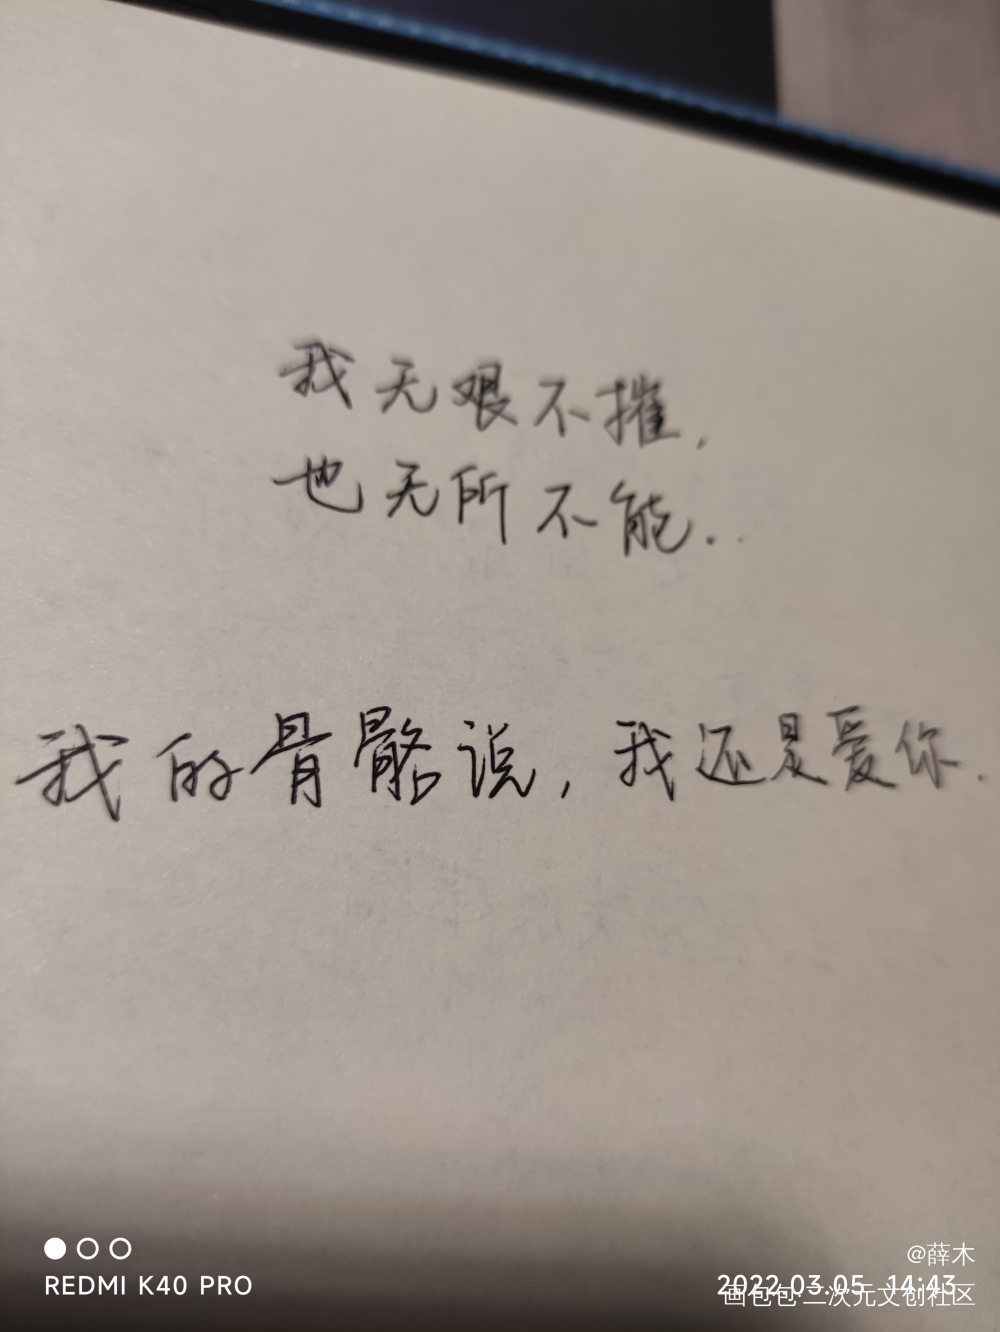 我无艰不摧,
也无所不能..
我的骨骼说,我还是爱你.
@薛木
REDMI K40 PRO
2022.03.05 14:43
画包包·二次元文创社区